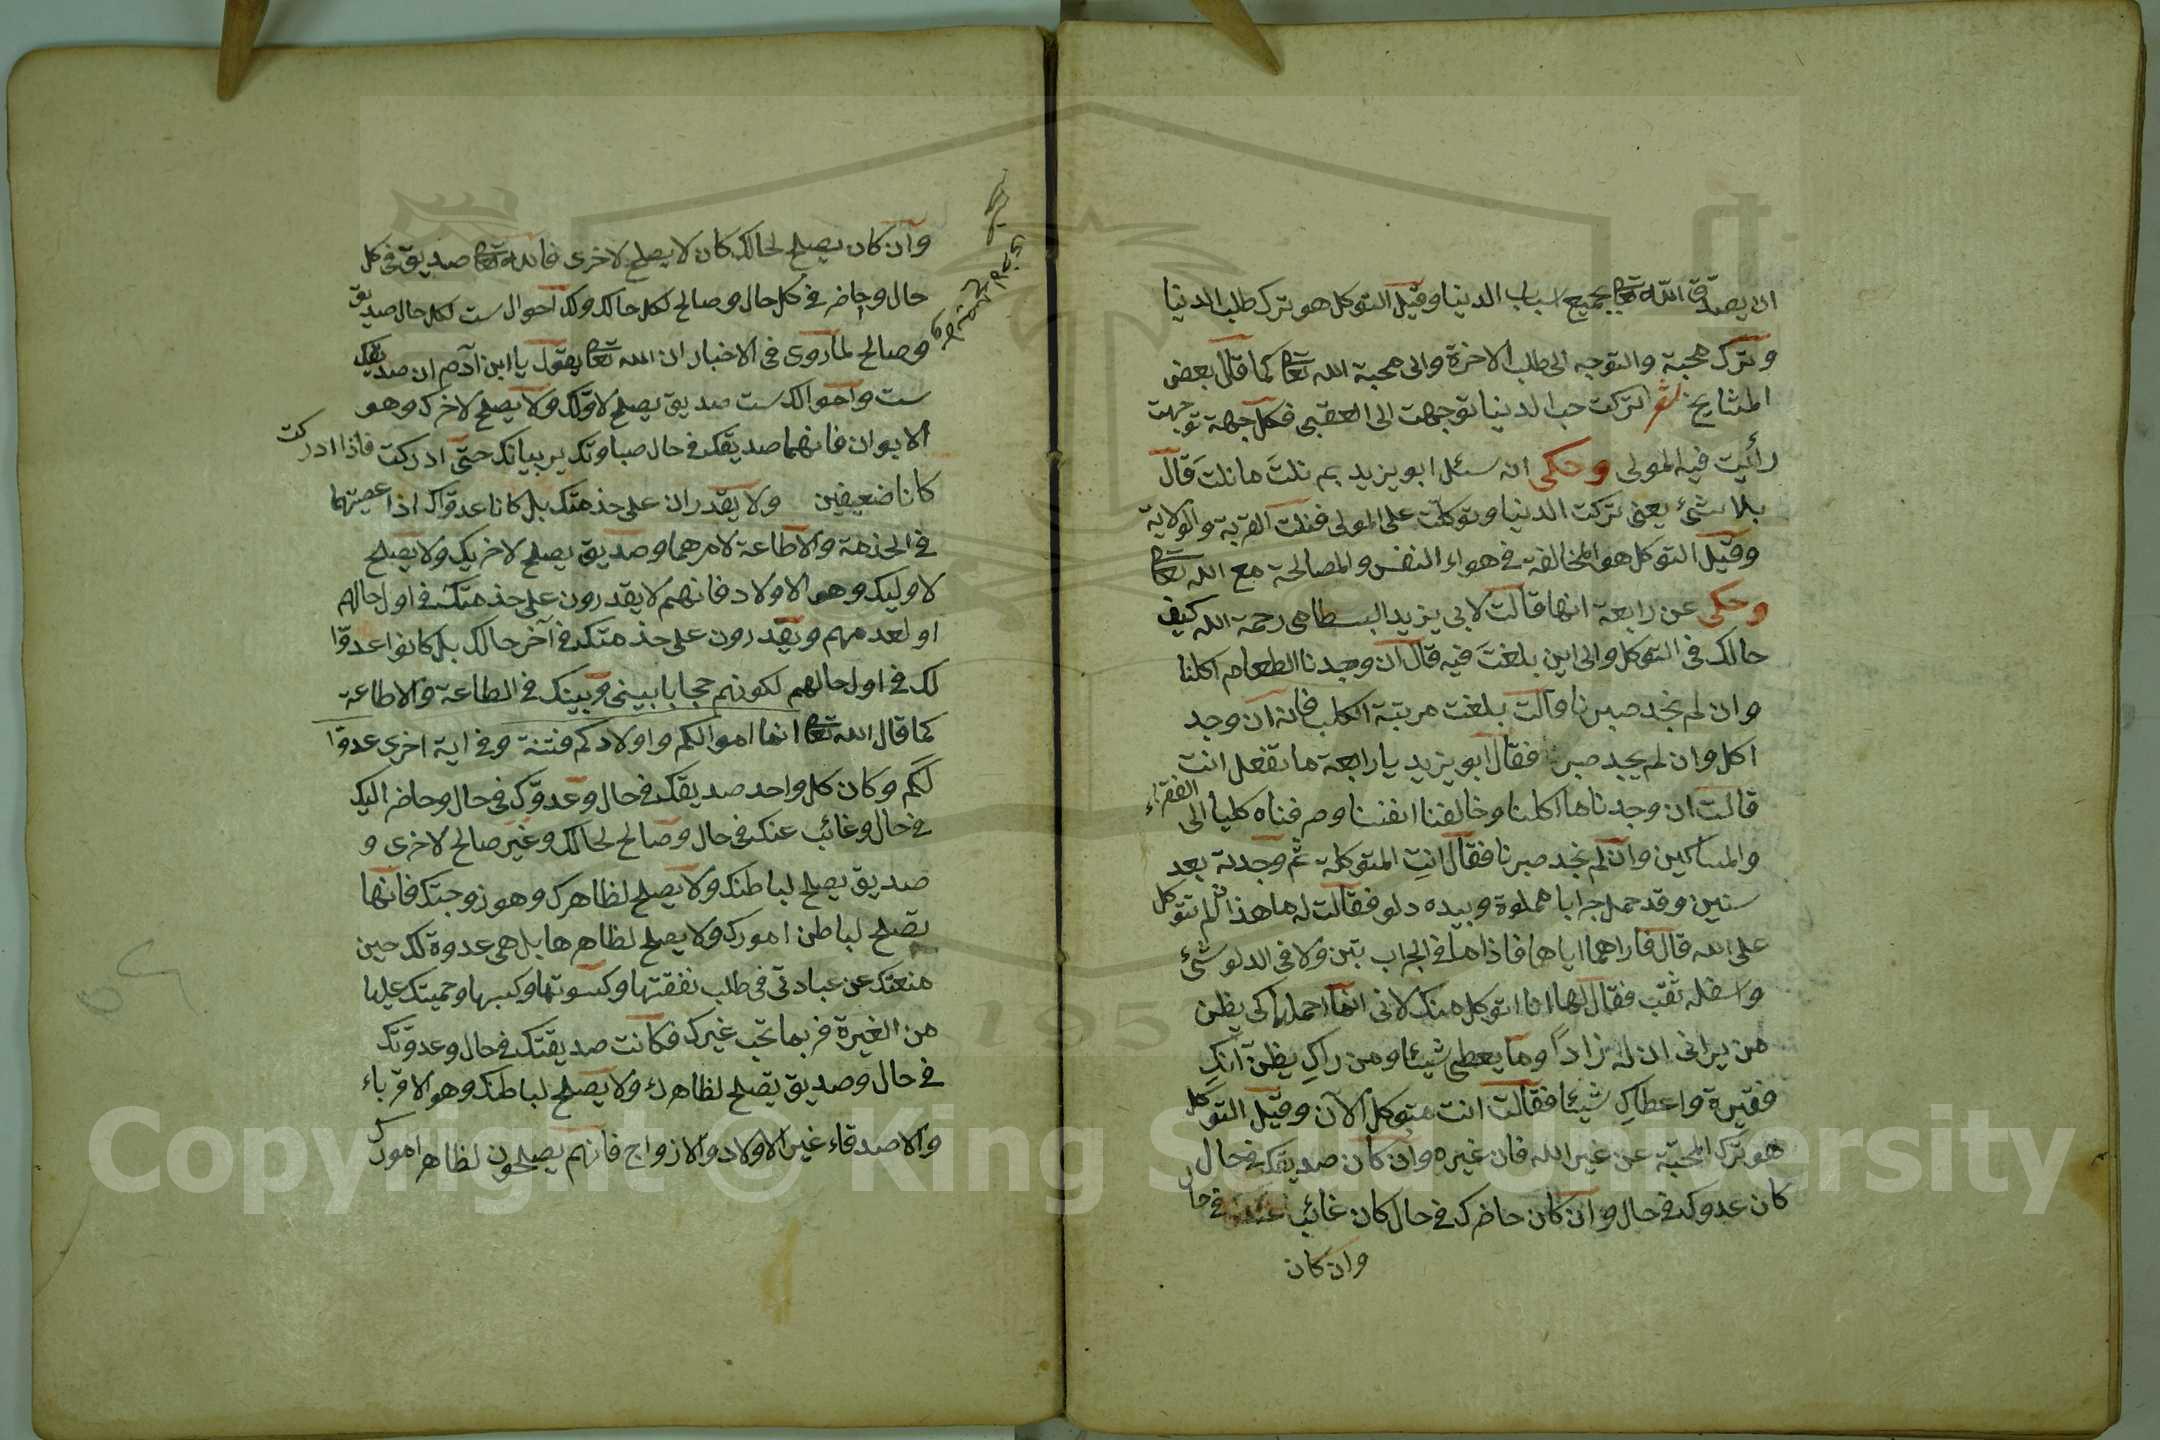 ان يصدق الله تعا بجميع اسباب الدنيا وقيل التوكل هو ترك طلب الدنيا
وترك محبة والتوجه الى طلب الاخرة والى محبة الله تعا كما قال بعض
المشايخ تركت حب الدنيا توجهت الى العقبى فكل جهة توجهت
رأيت فيه المولى وحكى انه سئل ابو يزيد بم نلت ما نلت قال
بلا شئ يعنى تركت الدنيا وتوكلت على المولى فنلت القربة والولاية
وقيل التوكل هو المخالفة في هواء النفس والمصالحة مع الله تعا
وحكى عن رابعة انها قالت لابى يزيد البسطامى رحمة الله كيف
حالك فى التوكل والى اين بلغت فيه قال ان وجدنا الطعام اكلنا
وان لم نجد صبرنا قالت بلغت مرتبة الكلب فانه ان وجد
اكل وان لم يجد صبر فقال ابو يزيد يا رابعة ما تفعل انت
قالت ان وجدناها اكلنا وخالفنا انفسنا وصرفناه كليا الى الفقراء
والمساكين وان لم نجد صبرنا فقال انت المتوكلة ثم وجدته بعد
سنين وقد حمل جرابا مملوة وبيده دلو فقالت له ما هذا لم تتوكل
على الله قال فاراهما اياها فاذا ما في الجراب تبن ولا في الدلو شئ
واسفله ثقب فقال لها انا اتوكل منك لانى انما احملها كى يظن
من يرانى ان له زادا وما يعطى شيئا ومن راك يظن انك
فقيرة واعطاك شيئا فقالت انت متوكل الآن وقيل التوكل
هو ترك المحبة عن غير الله فان غيره وان كان صديقك في حال
كان عدوك في حال وان كان حاضرك في حال كان غائب عنك في حال
وان كان
وان كان يصلح لحالك كان لا يصلح لاخرى فالله تعا صديق فى كل
حال وحاضر في كل حال وصالح لكل حالك ولك احوال ست لكل حال صديق
وصالح لما روى فى الاخبار ان الله تعا يقول يا ابن آدم ان صديقك
ست واحوالك ست صديق يصلح لاولك ولا يصلح لاخرك وهو
الابوان فانهما صديقك في حال صباوتك يربيانك حتى ادركت فاذا ادركت
كانا ضعيفين ولا يقدران على خذمتك بل كانا عدواك اذا عصيتهما
في الخذمة والاطاعة لامرهما وصديق يصلح لاخريك ولا يصلح
لاوليك وهو الاولاد فانهم لا يقدرون على خذمتك في اول حالهم
او لعدمهم ويقدرون على خذمتك في آخر حالك بل كانوا عدوا
لك في اول حالهم لكونهم حجابا بينى وبينك في الطاعة والاطاعة
كما قال الله تعا انما اموالكم واولادكم فتنة وفى اية اخرى عدوا
لكم وكان كل واحد صديقك في حال وعدوك في حال وحاضر اليك
في حال وغائب عنك فى حال وصالح لحالك وغير صالح لاخرى و
صديق يصلح لباطنك ولا يصلح لظاهرك وهو زوجتك فانها
تصلح لباطن امورك ولا يصلح لظاهرها بل هى عدوة لك حين
منعتك عن عبادتى فى طلب نفقتها وكسوتها وكبرها وحميتك عليها
من الغيرة فربما تحب غيرك فكانت صديقتك في حال وعدوتك
في حال وصديق يصلح لظاهرك ولا يصلح لباطنك وهو الاقرباء
والاصدقاء غير الاولاد والازواج فانهم يصلحون لظاهر امورك